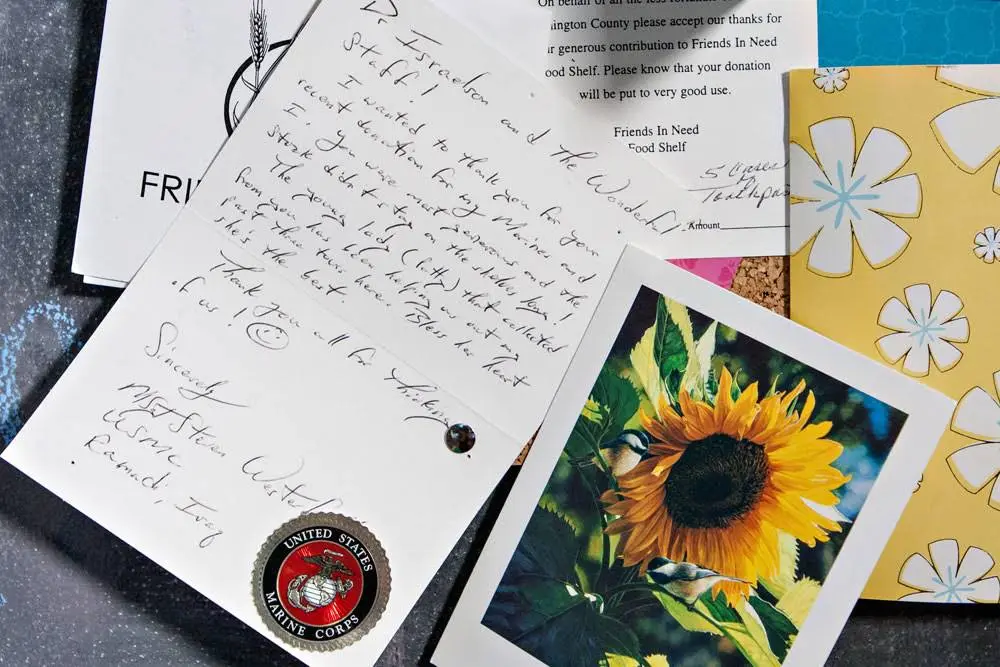 Dr Israelson and The Wonderful
Staff!
I wanted to thank you for your
recent donation for my Marines and
I. You were most generous and the
stock didn't stay on the shelves long!
The young lady (Patty) that collected
from you has been helping us out my
past three tours here. Bless her heart
she's the best.
Thank you all for thinking
of us!
Sincerely
MSgt Steven
USMC
Ramadi, Iraq
UNITED STATES
MARINE CORPS
FRI
On behalf of all the less fortunate
ington County please accept our thanks for
ur generous contribution to Friends In Need
ood Shelf. Please know that your donation
will be put to very good use.
Friends In Need
Food Shelf
5 Cases
Toothpaste
Amount